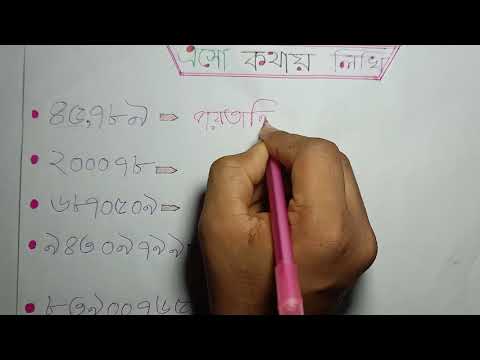 এসো কথায় লিখি
• ৪৫,৭৮৯ ⇨ পয়তা
• ২০০০৭৮ ⇨
• ৬৮৭০৫০৯ ⇨
• ৯৪৩০৯৭৯৯
• ৮৩৯০০৭৬৫